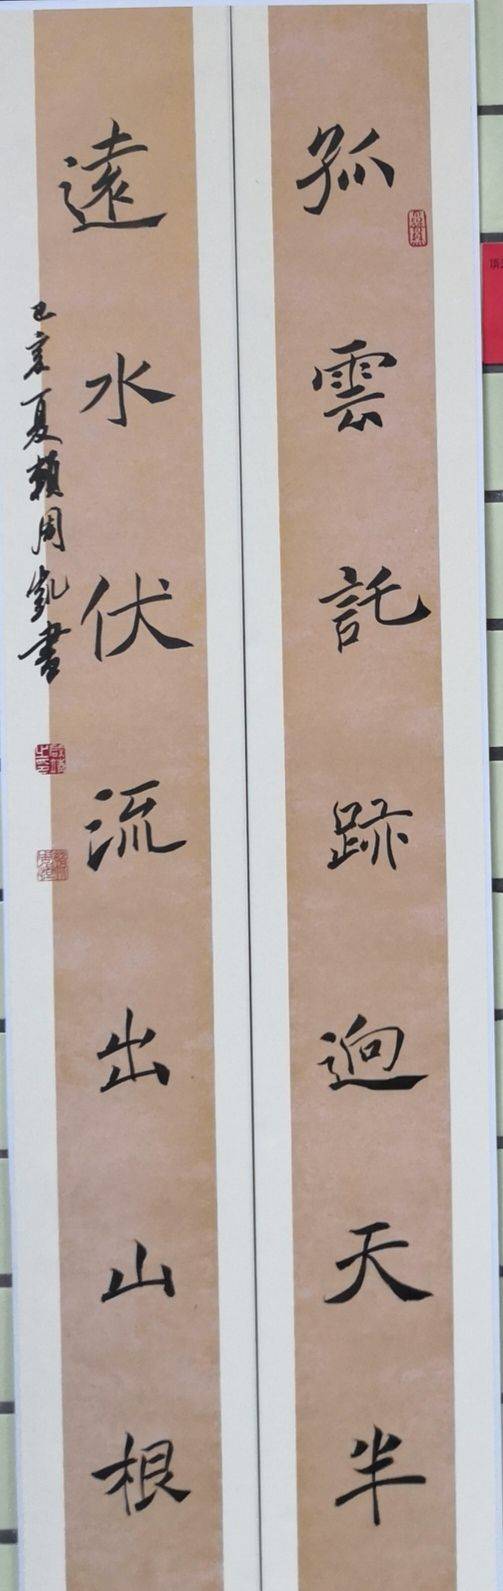 孤雲託跡迥天半
遠水伏流出山根
己亥夏賴周凱書